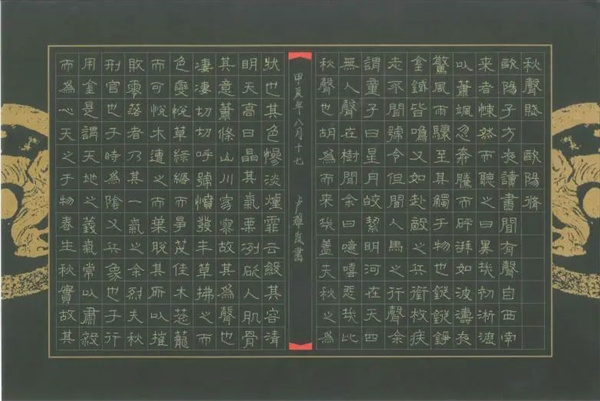 秋聲賦 歐陽脩
歐陽子方夜讀書聞有聲自西南
來者悚然而聽之曰異哉初淅瀝
以蕭颯忽奔騰而砰湃如波濤夜
驚風雨驟至其觸于物也鏦鏦錚
金鐵皆鳴又如赴敵之兵銜枚疾
走不聞號令但聞人馬之行聲余
謂童子曰星月皎潔明河在天四
無人聲在樹間余曰噫嘻悲哉此
秋聲也胡為而來哉蓋天秋之為
甲辰年八月十七
狀也其色慘淡煙霏云斂其容清
明天高日晶其氣栗冽砭人肌骨
其意蕭條山川寂寥故其為聲也
淒淒切切呼號憤發丰草拂之而
色變悅草綠縟而爭茂佳木蔥蘢
而可悅木遭之而葉脫其所以摧
敗零落者乃其一氣之余烈夫秋
刑官也于時為陰又兵象也于行
用金是謂天地之義氣常以肅殺
而為心天之于物春生秋實故其